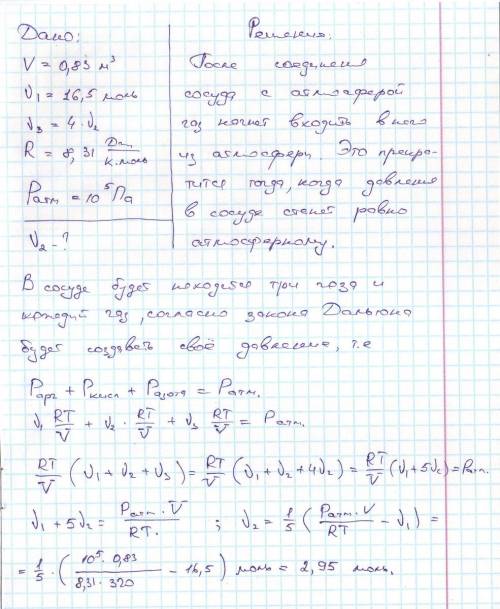 Дано:
V = 0,83 м³
ν₁ = 16,5 моль
ν₃ = 4·ν₂
R = 8,31 Дж/К·моль
Pатм = 10⁵ Па
ν₂ - ?
Решение.
После соединения
сосуда с атмосферой
газ начнет входить в него
из атмосферы. Это прекра-
тится тогда, когда давление
в сосуде станет равно
атмосферному.
В сосуде будет находится три газа и
каждый газ, согласно закона Дальтона
будет создавать своё давление, т.е
Pарг + Pкисл + Pазота = Pатм.
ν₁ RT/V + ν₂ · RT/V + ν₃ RT/V = Pатм.
RT/V (ν₁ + ν₂ + ν₃) = RT/V (ν₁ + ν₂ + 4ν₂) = RT/V (ν₁ + 5ν₂) = Pатм.
ν₁ + 5ν₂ = Pатм. · V/RT. ; ν₂ = 1/5 (Pатм. · V/RT − ν₁) =
= 1/5 · (10⁵ · 0,83/8,31 · 320 − 16,5) моль = 2,95 моль.